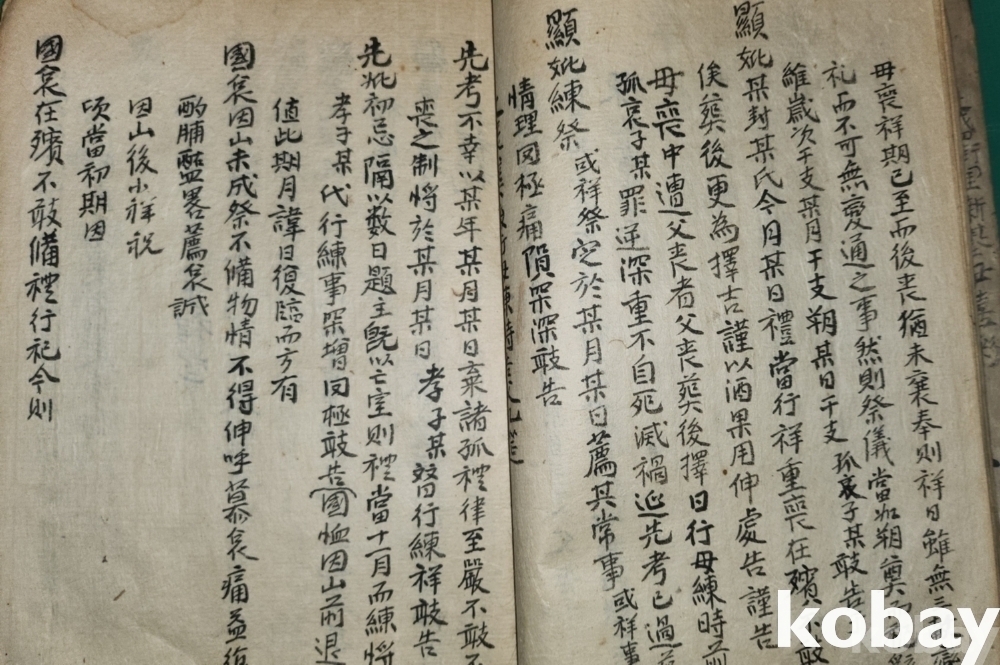 母喪祥期已至而後喪猶未襄奉則祥日雖無
礼而不可無変通之事然則祭儀當如朔奠
維歲次干支某月干支朔某日干支孤哀子某敢告
顯妣某封某氏今月某日禮當行祥重喪在殯
俟葬後更為擇吉謹以酒果用伸處告謹告
母喪中遭父喪者父喪葬後擇日行母練時前
孤哀子某罪逆深重不自死滅禍延先考已過
顯妣練祭或祥祭定於某月某日薦其常事或祥事
情理罔極痛隕深深敢告
先考不幸以某年某月某日棄諸孤禮律至嚴不敢不
喪之制將於某月某日孝子某替行練祥敢告
先妣初忌隔以数日題主既以亡室則禮當十一月而練將
孝子某代行練事深增罔極敢告國恤因山前退
值此期月諱日復臨而方有
國哀因山未成祭不備物情不得伸呼慕哀痛益復
酌脯醢畧薦哀誠
因山後小祥祝
頃當初期因
國哀在殯不敢備禮行祀今則
kobay